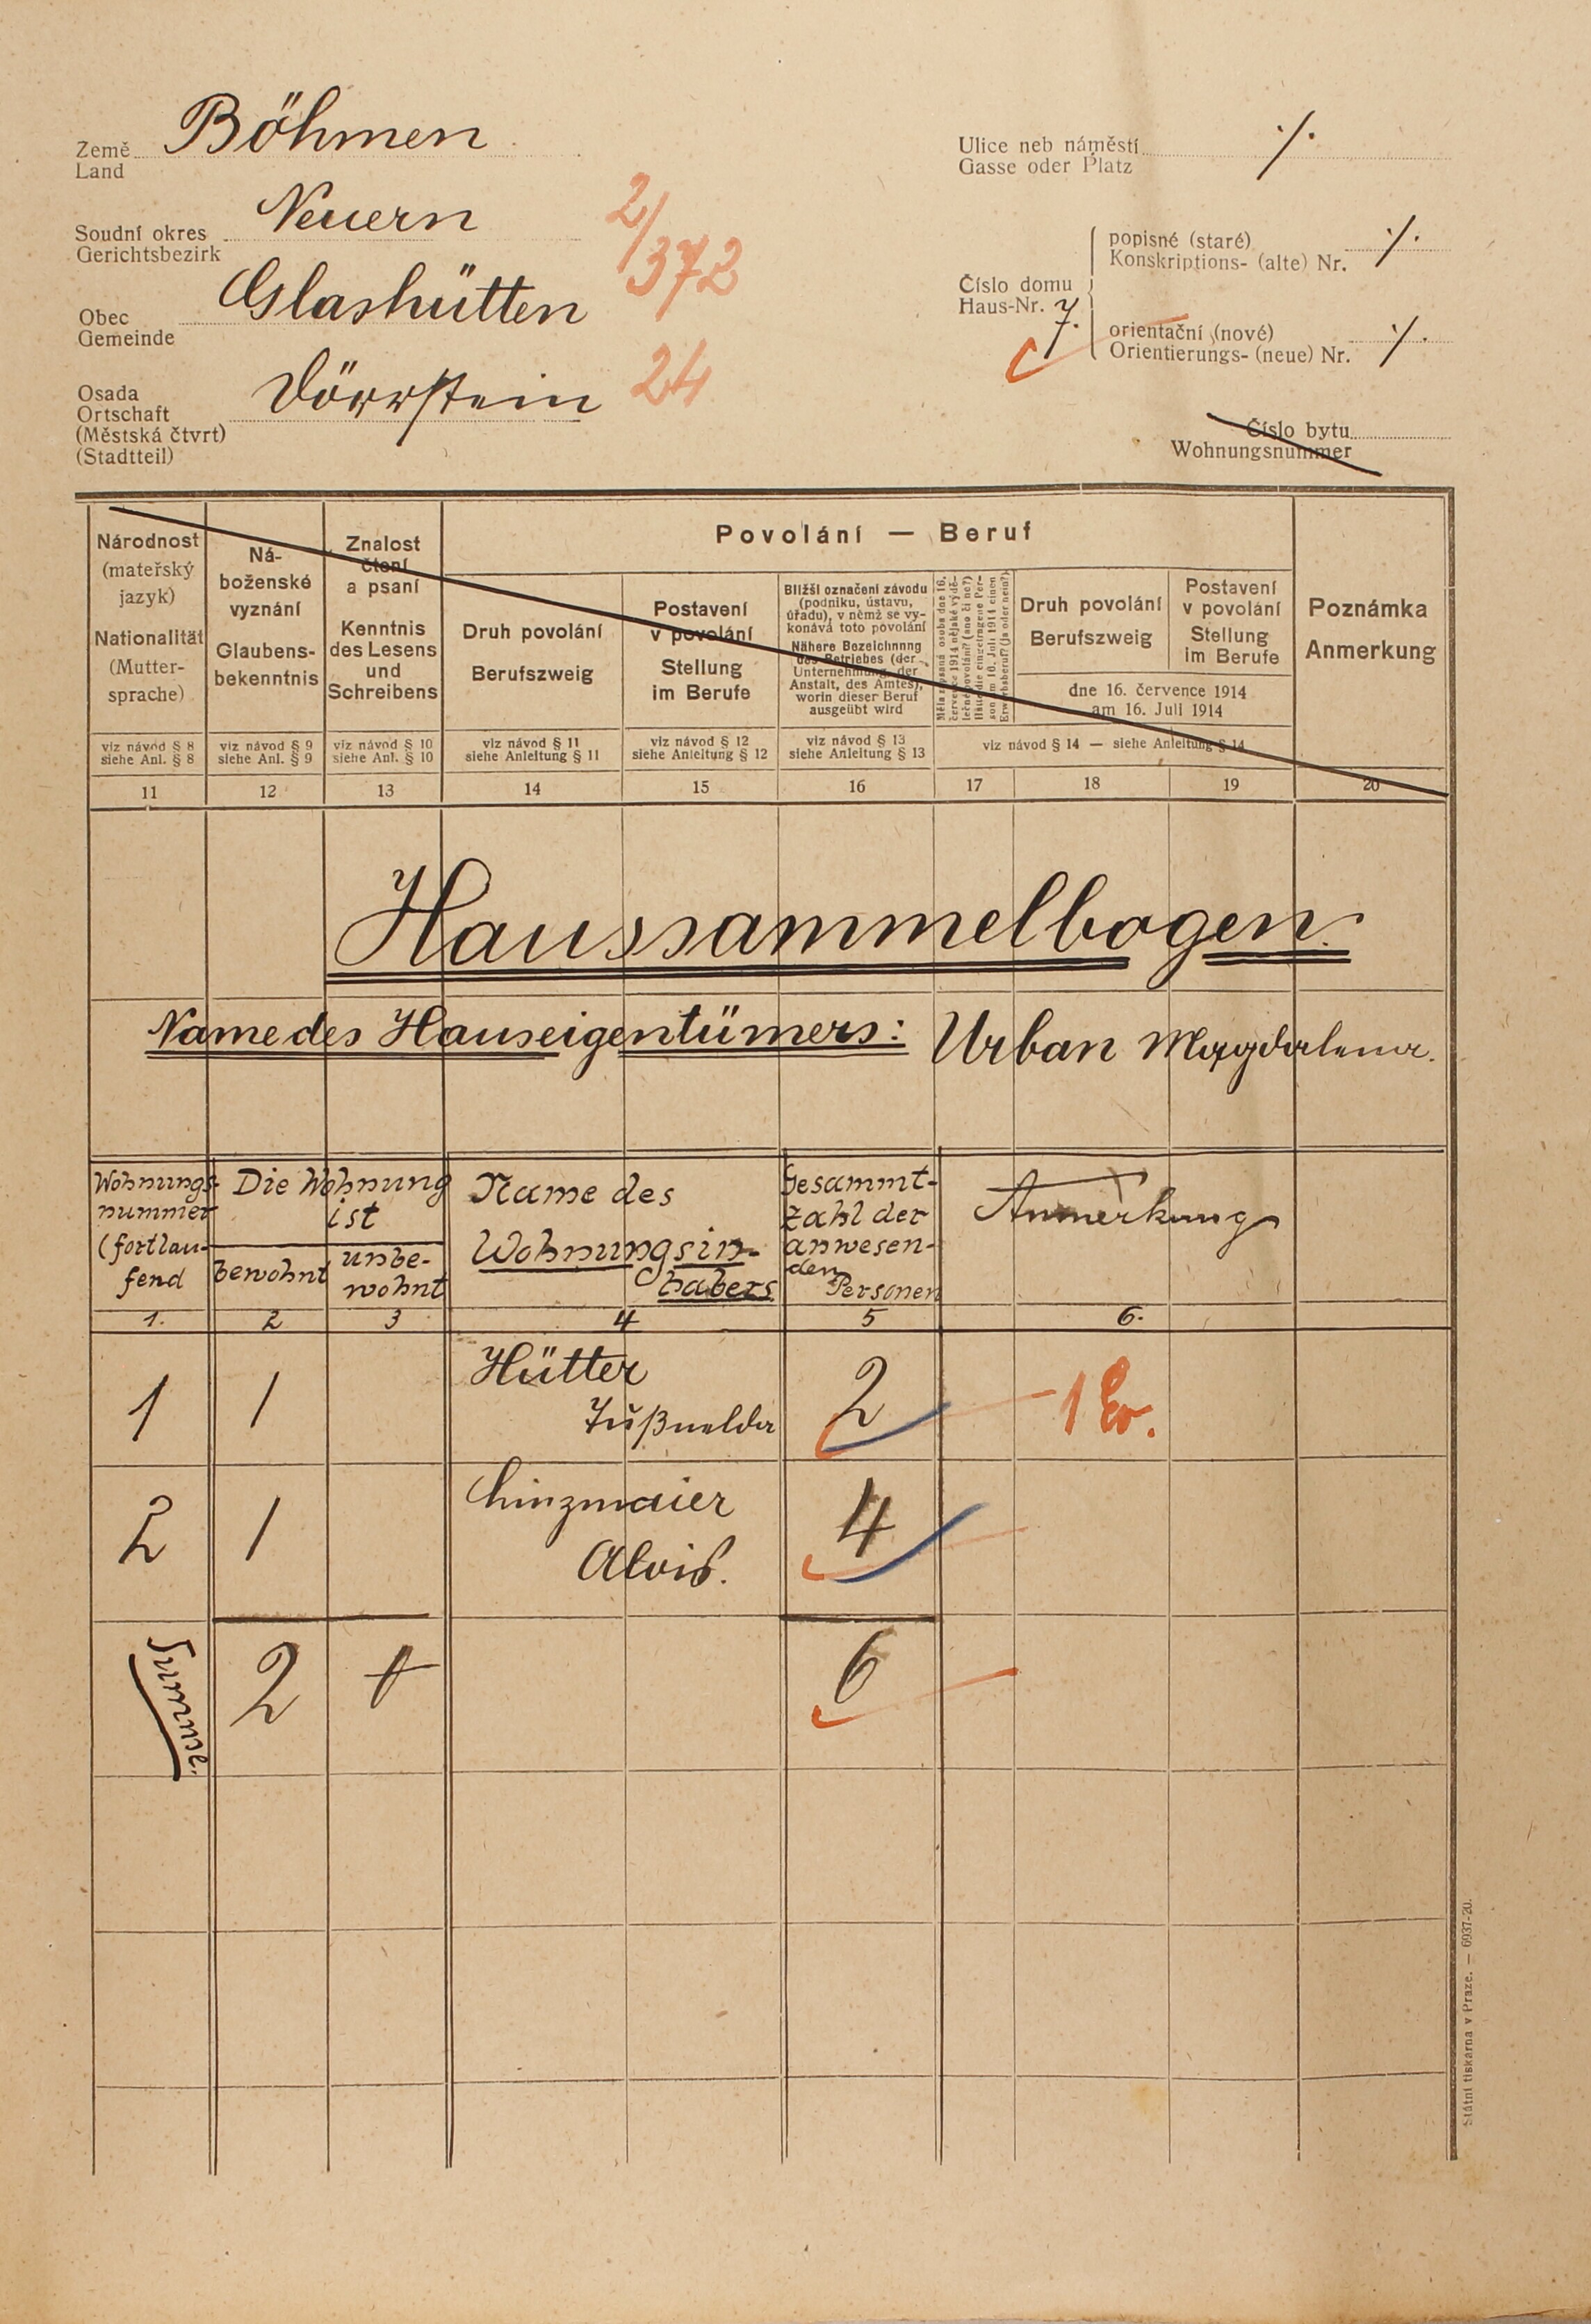 Země Böhmen
Land
Soudní okres Neuern
Gerichtsbezirk
2/372
Obec Glashütten
Gemeinde
Osada Dörrstein 24
Ortschaft
(Městská čtvrt)
(Stadtteil)
Ulice neb náměstí ./.
Gasse oder Platz
Číslo domu
Haus-Nr. 7.
popisné (staré)
Konskriptions- (alte) Nr. ./.
orientační (nové)
Orientierungs- (neue) Nr. ./.
Číslo bytu
Wohnungsnummer
Národnost
(mateřský
jazyk)
Nationalität
(Mutter-
sprache)
viz návod § 8
siehe Anl. § 8
11
Ná-
boženské
vyznání
Glaubens-
bekenntnis
viz návod § 9
siehe Anl. § 9
12
Znalost
čtení
a psaní
Kenntnis
des Lesens
und
Schreibens
viz návod § 10
siehe Anl. § 10
13
Povolání — Beruf
Druh povolání
Berufszweig
viz návod § 11
siehe Anleitung § 11
14
Postavení
v povolání
Stellung
im Berufe
viz návod § 12
siehe Anleitung § 12
15
Bližší označení závodu
(podniku, ústavu,
úřadu), v němž se vy-
konává toto povolání
Nähere Bezeichnnng
des Betriebes (der
Unternehmung, der
Anstalt, des Amtes),
worin dieser Beruf
ausgeübt wird
viz návod § 13
siehe Anleitung § 13
16
17
Druh povolání
Berufszweig
18
Postavení
v povolání
Stellung
im Berufe
19
dne 16. července 1914
am 16. Juli 1914
viz návod § 14 — siehe Anleitung § 14
Poznámka
Anmerkung
20
Haussammelbogen.
Name des Hauseigentümers: Urban Magdalena.
Wohnungs-
nummer
(fortlau-
fend
1.
Die Wohnung
ist
bewohnt
2
unbe-
wohnt
3
Name des
Wohnungsin-
habers
4
Gesammt-
zahl der
anwesen-
den
Personen
5
Anmerkung
6.
1 1 Hütter 2 1
2 1 Linzmaier 4
Alois.
Summe. 2 6
Státní tiskárna v Praze. — 6937-20.